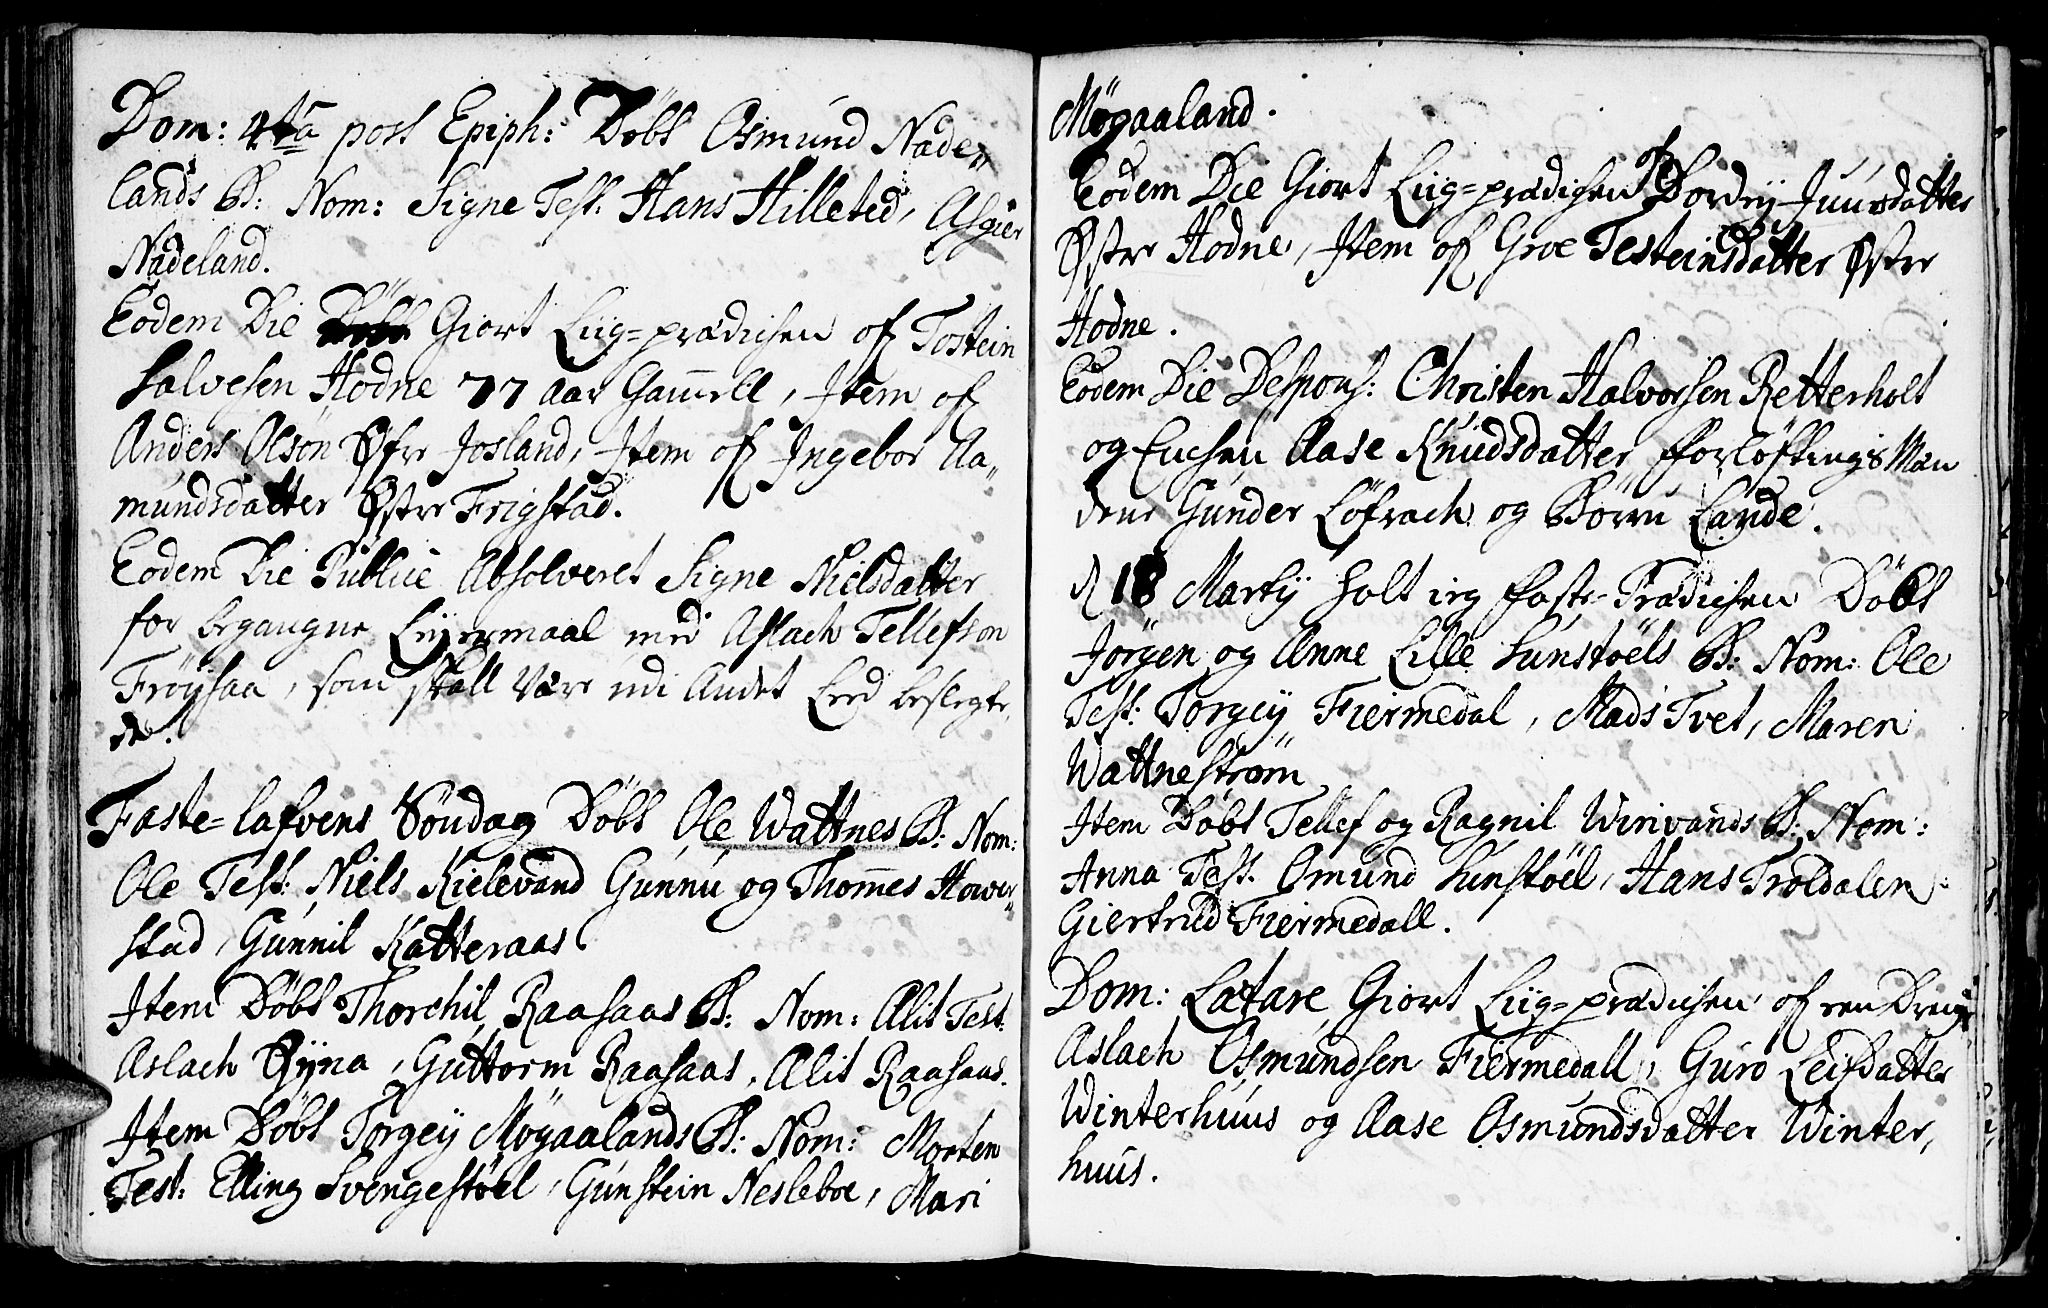 Dom: 4ta post Epiph: Döbt Osmund Nade„
lands B: Nom: Signe Test: Hans Hilleted, Asgier
Nadeland.
Eodem Die Giort Liig=prædichen of Tostein
Salvesen Hodne 77 aar Gam̅ell, Item of
Anders Olson Øfre Josland, Item of Ingebor Aa„
mundsdatter Østre Frigstad.
Eodem Die Publice Absolveret Signe Nielsdatter
for begangne Leyermaal med Aslach Tellefson
Fröysaa, som skall være udi Andet Leed beslegte,
de.
Faste=lafvens Söndag Döbt Ole Wattnes B: Nom:
Ole Test: Niels Kielevand Gunnu og Thom̅es Hower„
stad, Gunnil Katteraas
Item Döbt Thorchil Raasaas B: Nom: Ælit Test:
Aslach Øyna, Guttorm Raasaas, Ælit Raasaas.
Item Döbt Torgey Møgaalands B: Nom: Morten
Test: Elling Svengestöel, Gunstein Nesleboe, Mari
Møgaaland.
Eodem Die Giort Liig=prædichen of Dordey Juursdatter
Østre Hodne, Item of Groe Testeinsdatter Østre
Hodne.
Eodem Die Despons: Christen Halvorsen Retterholt
og Enchen Aase Knudsdatter fforløftnings Mæn
dene Gunder Löfrach og Börru Lande.
d 18 Martij holt ieg ffaste-Prædichen Döbt
Jörgen og Anne Lille Sunstöels B: Nom: Ole
Test: Torgey Fiermedal, Mads Tvet, Maren
Wattneström
Item Döbt Tellef og Ragnil Wirivands B: Nom:
Anna Test. Osmund Sunstöel, Hans Troldalen
Giertrud Fiermedall.
Dom: Lætare, Giort Liig=prædichen of en Dreng
Aslach Osmundsen Fiermedall, Guro Leifsdatter
Winterhuus og Aase Osmundsdatter Winter,
huus.